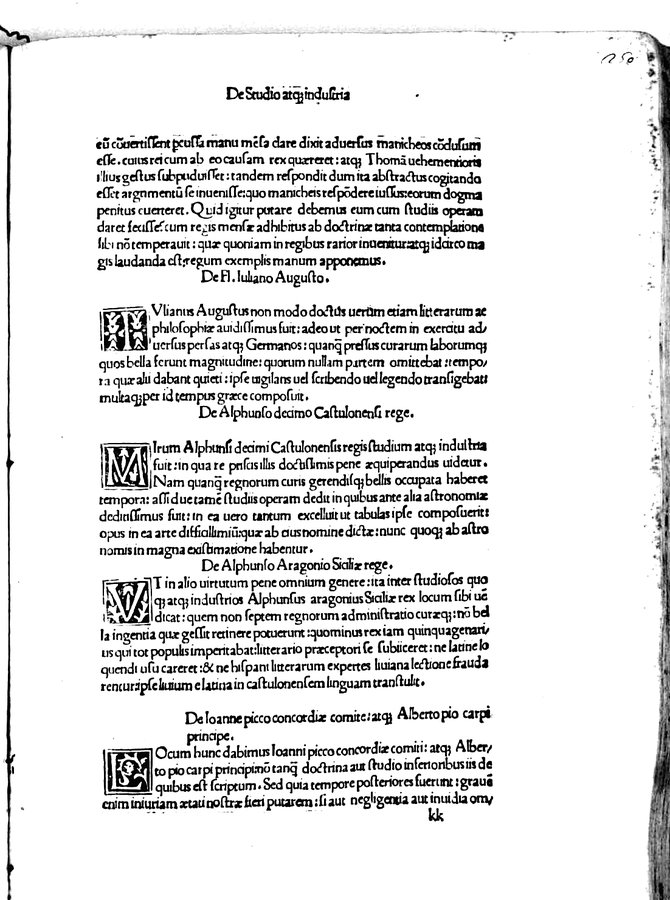 250
De Studio atq; industria
eũ cõuertissent ꝑcussa manu mẽsa dare dixit aduersus manicheos cõclusum
esse. cuius rei cum ab eo causam rex quæreret: atq; Thomã uehementioris
illius gestus subpuduisset: tandem respondit dum ita abstractus cogitando
esset argumentũ se inuenisse: quo manicheis respõdere iussus: eorum dogma
penitus euerteret. Quid igitur putare debemus eum cum studiis operam
daret fecisse: cum regis mensæ adhibitus ab doctrinæ tanta contemplatione
sibi nõ temperauit: quæ quoniam in regibus rarior inuenitur: atq; idcirco ma
gis laudanda est: regum exemplis manum apponemus.
De Fl. Iuliano Augusto.
IVlianus Augustus non modo doctus uerũm etiam litterarum ac
philosophiæ auidissimus fuit: adeo ut per noctem in exercitu ad/
uersus persas atq; Germanos: quanq̃ pressus curarum laborumq;
quos bella ferunt magnitudine: quorum nullam partem omittebat: tempo/
ra quæ alii dabant quieti: ipse uigilans uel scribendo uel legendo transigebat:
multaq; per id tempus græce composuit.
De Alphunso decimo Castulonensi rege.
MIrum Alphunsi decimi Castulonensis regis studium atq; industria
fuit: in qua re priscis illis doctissimis pene æquiperandus uidetur.
Nam quanq̃ regnorum curis gerendisq; bellis occupata haberet
tempora: assidue tamẽ studiis operam dedit in quibus ante alia astronomiæ
deditissimus fuit: in ea uero tantum excelluit ut tabulas ipse composuerit:
opus in ea arte difficillimũ: quæ ab eius nomine dictæ: nunc quoq; ab astro
nomis in magna existimatione habentur.
De Alphunso Aragonio Siciliæ rege.
VT in alio uirtutum pene omnium genere: ita inter studiosos quo
q; atq; industrios Alphunsus aragonius Siciliæ rex locum sibi uẽ
dicat: quem non septem regnorum administratio curæq;: nõ bel
la ingentia quæ gessit retinere potuerunt: quominus rex iam quinquagenari/
us qui tot populis imperitabat: litterario præceptori se subiiceret: ne latine lo
quendi usu careret: & ne hispani litterarum expertes liuiana lectione frauda
rentur: ipse liuium e latina in castulonensem linguam transtulit.
De Ioanne picco concordiæ comite: atq; Alberto pio carpi
principe.
LOcum hunc dabimus Ioanni picco concordiæ comiti: atq; Alber/
to pio carpi principi: nõ tanq̃ doctrina aut studio inferioribus iis de
quibus est scriptum. Sed quia tempore posteriores fuerunt: grauẽ
enim iniuriam ætati nostræ fieri putarem: si aut negligentia aut inuidia om/
kk